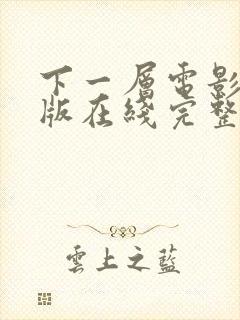 下一層電影
版在綫完整
雲上之藍